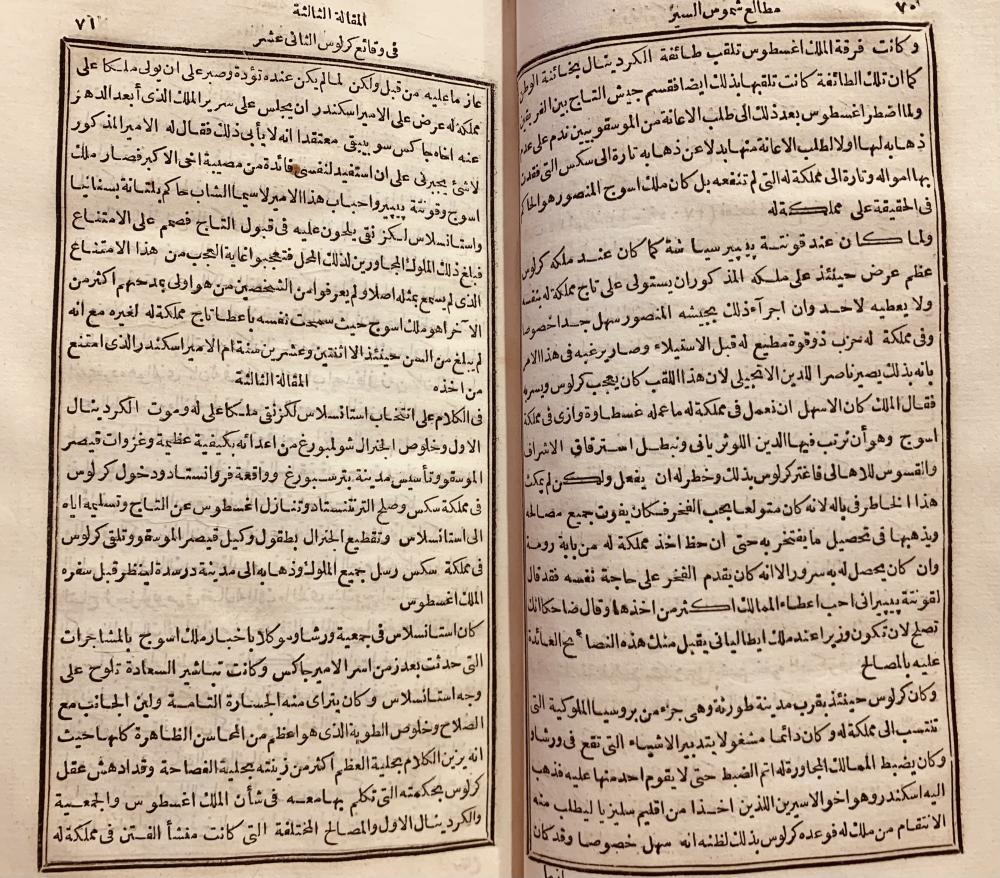 ٧٠
مطالع شموس السير
وكانت فرقة الملك اغسطوس تلقب طائفة الكردينال بخائنة الوطن
كما ان تلك الطائفة كانت تلقبها بذلك ايضا فقسم جيش التاج بين الفريقين
ولما اضطر اغسطوس بعد ذلك الى طلب الاعانة من الموسقوبيين ندم على عدم
ذهابه لها اولا لطلب الاعانة منها بدلا عن ذهابه تارة الى سكس التى فقد
بها امواله وتارة الى مملكة له التى لم تنفعه بل كان ملك اسوج المنصور هو الحاكم
فى الحقيقة على مملكة له
ولما كان عند قونتة پيپير سياسة كما كان عند ملكه كرلوس
عظم عرض حينئذ على ملكه المذكور ان يستولى على تاج مملكة له بنفسه
ولا يعطيه لاحد وان اجرآ ذلك بجيشه المنصور سهل جدا خصوصا
وفى مملكة له حزب ذو قوة مطيع له قبل الاستيلاء وصار يرغبه فى هذا الامر
بانه بذلك يصير ناصرا للدين الانجيلى لان هذا اللقب كان يعجب كرلوس ويسره
فقال الملك كان الاسهل ان نعمل فى مملكة له ما عمله غسطاوة وازى فى مملكة
اسوج وهو أن نرتب فيها الدين اللوثريانى ونبطل استرقاق الاشراف
والقسوس للاهالى فاغتر كرلوس بذلك وخطر له ان يفعل ولكن لم يمكث
هذا الخاطر فى باله لانه كان متولعا بحب الفخر فكان يفوت جميع مصالحه
ويذهبها فى تحصيل ما يفتخر به حتى ان حظ اخذ مملكة له من بابة رومة
وان كان يحصل له به سرور الا انه كان يقدم الفخر على حاجة نفسه فقد قال
لقونتة پيپيرانى احب اعطاء الممالك اكثر من اخذها وقال ضاحكا انك
تصلح لان تكون وزيرا عند ملك ايطاليانى يقبل منك هذه النصائح العائدة
عليه بالمصالح
وكان كرلوس حينئذ بقرب مدينة طورنة وهى جزء من بروسيا الملوكية التى
تنتسب الى مملكة له وكان دائما مشغولا بتدبير الاشياء التى تقع فى ورشاو
وكان يضبط الممالك المجاورة له اتم الضبط حتى لا يقوم احد منها عليه فذهب
اليه اسكندر وهو اخو الاسيرين اللذين اخذا من اقليم سليزيا ليطلب منه
الانتقام من ملك له فوعده كرلوس بذلك لظنه انه سهل خصوصا وقد كان
٧١
المقالة الثالثة
فى وقائع كرلوس الثانى عشر
عازما عليه من قبل ولكن لما لم يكن عنده تؤدة وصبر على ان يولى ملكا على
مملكة له عرض على الامير اسكندر ان يجلس على سرير الملك الذى أبعد الدهر
عنه اخاه جاكس سوبيبقى معتقدا انه لا يأبى ذلك فقال له الامير المذكور
لا شئ يجبرنى على ان استفيد لنفسى فائدة من مصيبة اخى الاكبر فصار ملك
اسوج وقونتة پيپير واحباب هذا الامير لا سيما الشاب حاكم پلتانة بسنانيا
واستانسلاس لكزنقى يلحون عليه فى قبول التاج فصمم على الامتناع
فبلغ ذلك الملوك المجاورين لذلك المحل فتعجبوا غاية العجب من هذا الامتناع
الذى لم يسمع بمثله اصلا ولم يعرفوا من الشخصين من هو اولى بمدحهم اكثر من
الآخر اهو ملك اسوج حيث سمحت نفسه باعطا تاج مملكة له لغيره مع انه
لم يبلغ من السن حينئذ الا اثنتين وعشرين سنة ام الامير اسكندر الذى امتنع
من اخذه
المقالة الثالثة
فى الكلام على انتخاب استانسلاس لكزنقى ملكا على له وموت الكردينال
الاول وخلوص الجنرال شولمبورغ من اعدائه بكيفية عظيمة وغزوات قيصر
الموسقو وتأسيس مدينة بترسبورغ وواقعة فروانستاد ودخول كرلوس
فى مملكة سكس وصلح الترنتستاد وتنازل اغسطوس عن التاج وتسليمه اياه
الى استانسلاس وتقطيع الجنرال بطقول وكيل قيصر الموسقو وتلقى كرلوس
فى مملكة سكس رسل جميع الملوك وذهابه الى مدينة درسدة لينظر قبل سفره
الملك اغسطوس
كان استانسلاس فى جمعية ورشاو موكلا باخبار ملك اسوج بالمشاجرات
التى حدثت بعد زمن اسر الامير جاكس وكانت تباشير السعادة تلوح على
وجه استانسلاس وكان يترا‌ى منه الجسارة التامة ولين الجانب مع
الصلاح وخلوص الطوية الذى هو اعظم من المحاسن الظاهرة كلها حيث
انه يزين الكلام بحلية العظم اكثر من زينته بحلية الفصاحة وقد ادهش عقل
كرلوس بحكمته التى تكلم بها معه فى شأن الملك اغسطوس والجمعية
والكردينال الاول والمصالح المختلفة التى كانت منشأ الفتن فى مملكة له